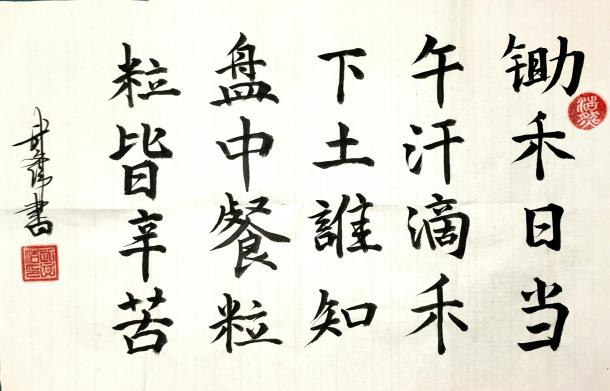 锄禾日当
午汗滴禾
下土誰知
盘中餐粒
粒皆辛苦
書
浩然